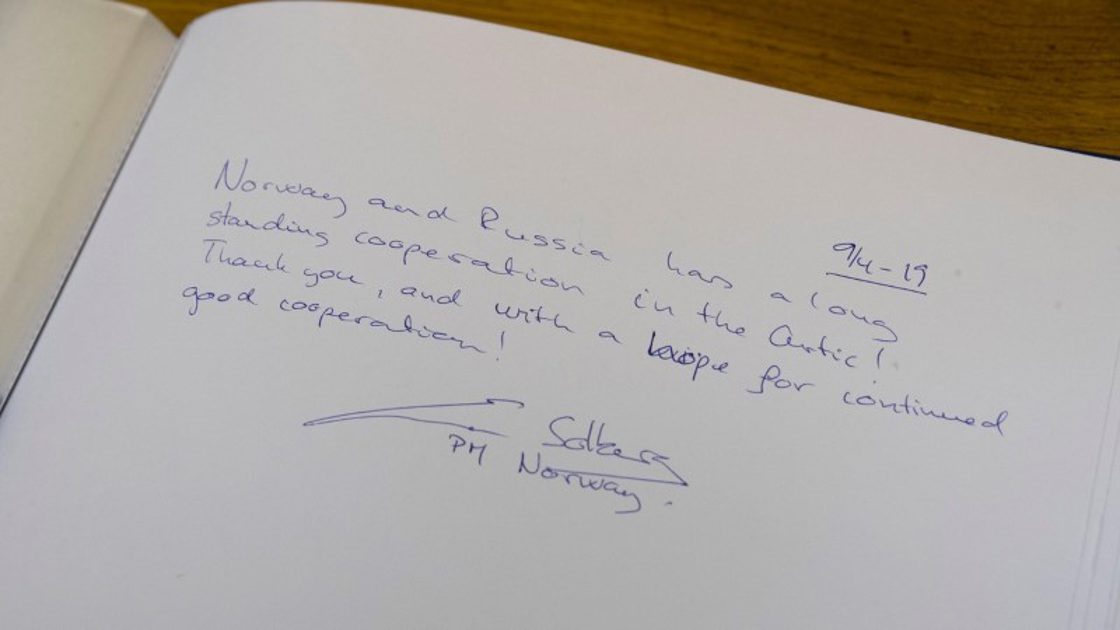 9/4-19
Norway and Russia has a long
standing cooperation in the Artic!
Thank you, and with a hope for continued
good cooperation!
Solberg
PM Norway.